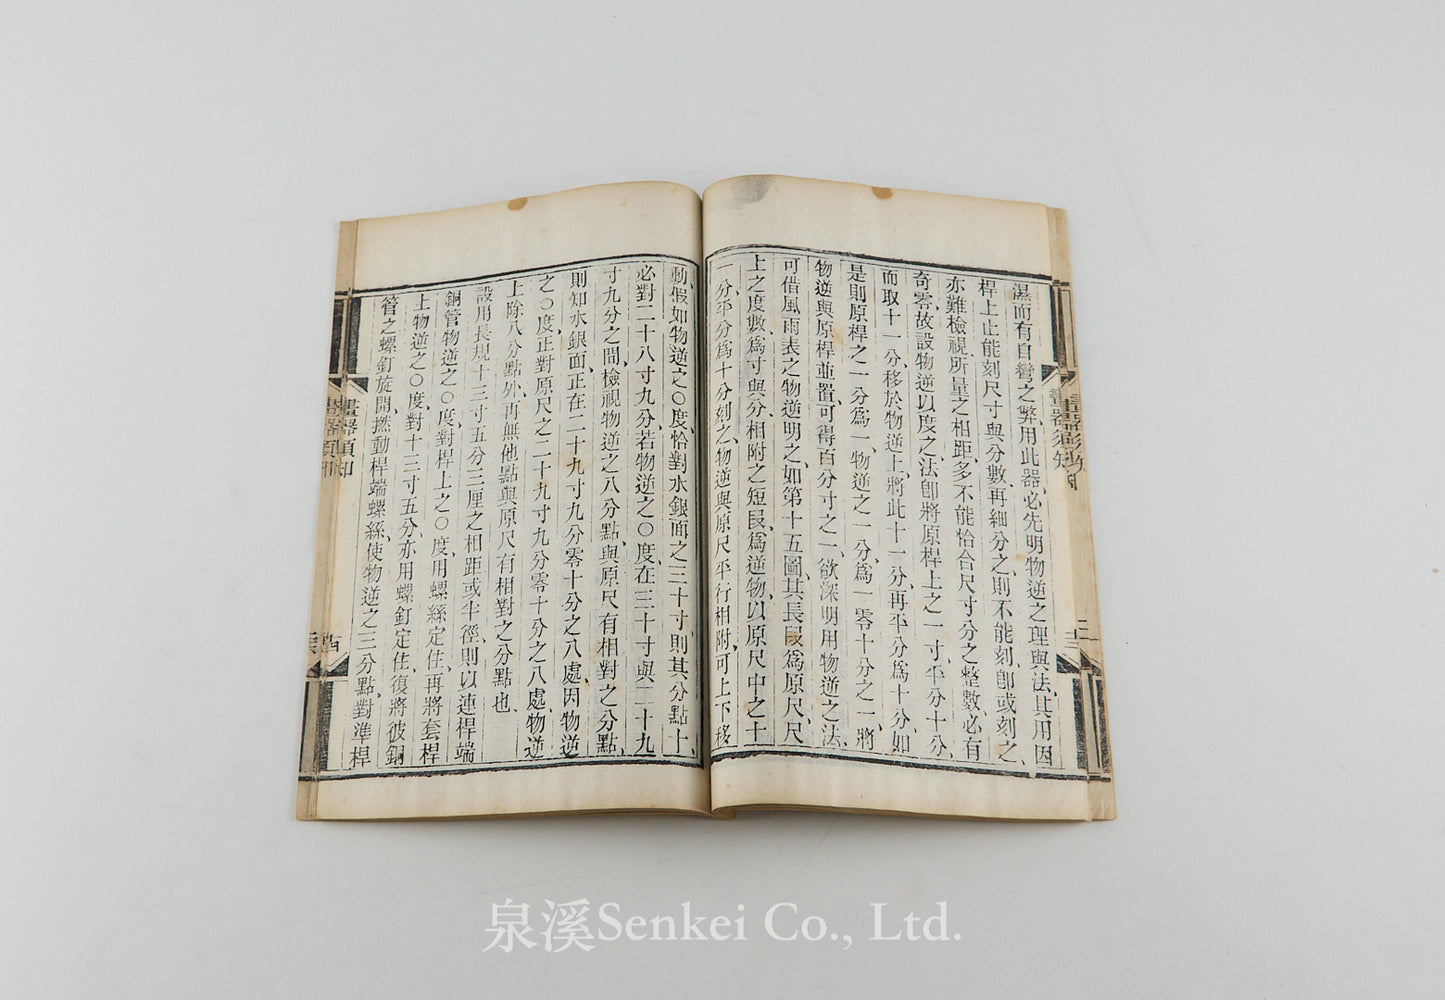 濕而有自彎之弊、用此器、必先明物逆之理與法、其用因
桿上止能刻尺寸與分數、再細分之、則不能刻、卽或刻之、
亦難檢視、所量之相距、多不能恰合尺寸分之整數、必有
奇零、故設物逆以度之、法卽將原桿上之一寸、平分十分、
而取十一分、移於物逆上、將此十一分、再平分爲十分、如
是則原桿之一分爲一、物逆之一分爲一零十分之一、將
物逆與原桿並置、可得百分寸之一、欲深明用物逆之法、
可借風雨表之物逆明之、如第十五圖、其長段爲原尺、尺
上之度數、爲寸與分、相附之短段、爲逆物、以原尺中之十
一分、平分爲十分刻之、物逆與原尺平行相附、可上下移
動、假如物逆之〇度、恰對水銀面之三十寸、則其分點十、
必對二十八寸九分、若物逆之〇度、在三十寸與二十九
寸九分之間、檢視物逆之八分點、與原尺有相對之分點、
則知水銀面正在二十九寸九分零十分之八處、因物逆
之〇度、正對原尺之二十九寸九分零十分之八處、物逆
上除八分點外、再無他點與原尺有相對之分點也、
設用長規十三寸五分三厘之相距或半徑、則以連桿端
銅管物逆之〇度、對桿上之〇度、用螺絲定住、再將套桿
上物逆之〇度、對十三寸五分、亦用螺釘定住、復將彼銅
管之螺釘旋開、撫動桿端螺絲、使物逆之三分點、對準桿
畫器須知
畫器須知
泉溪Senkei Co., Ltd.